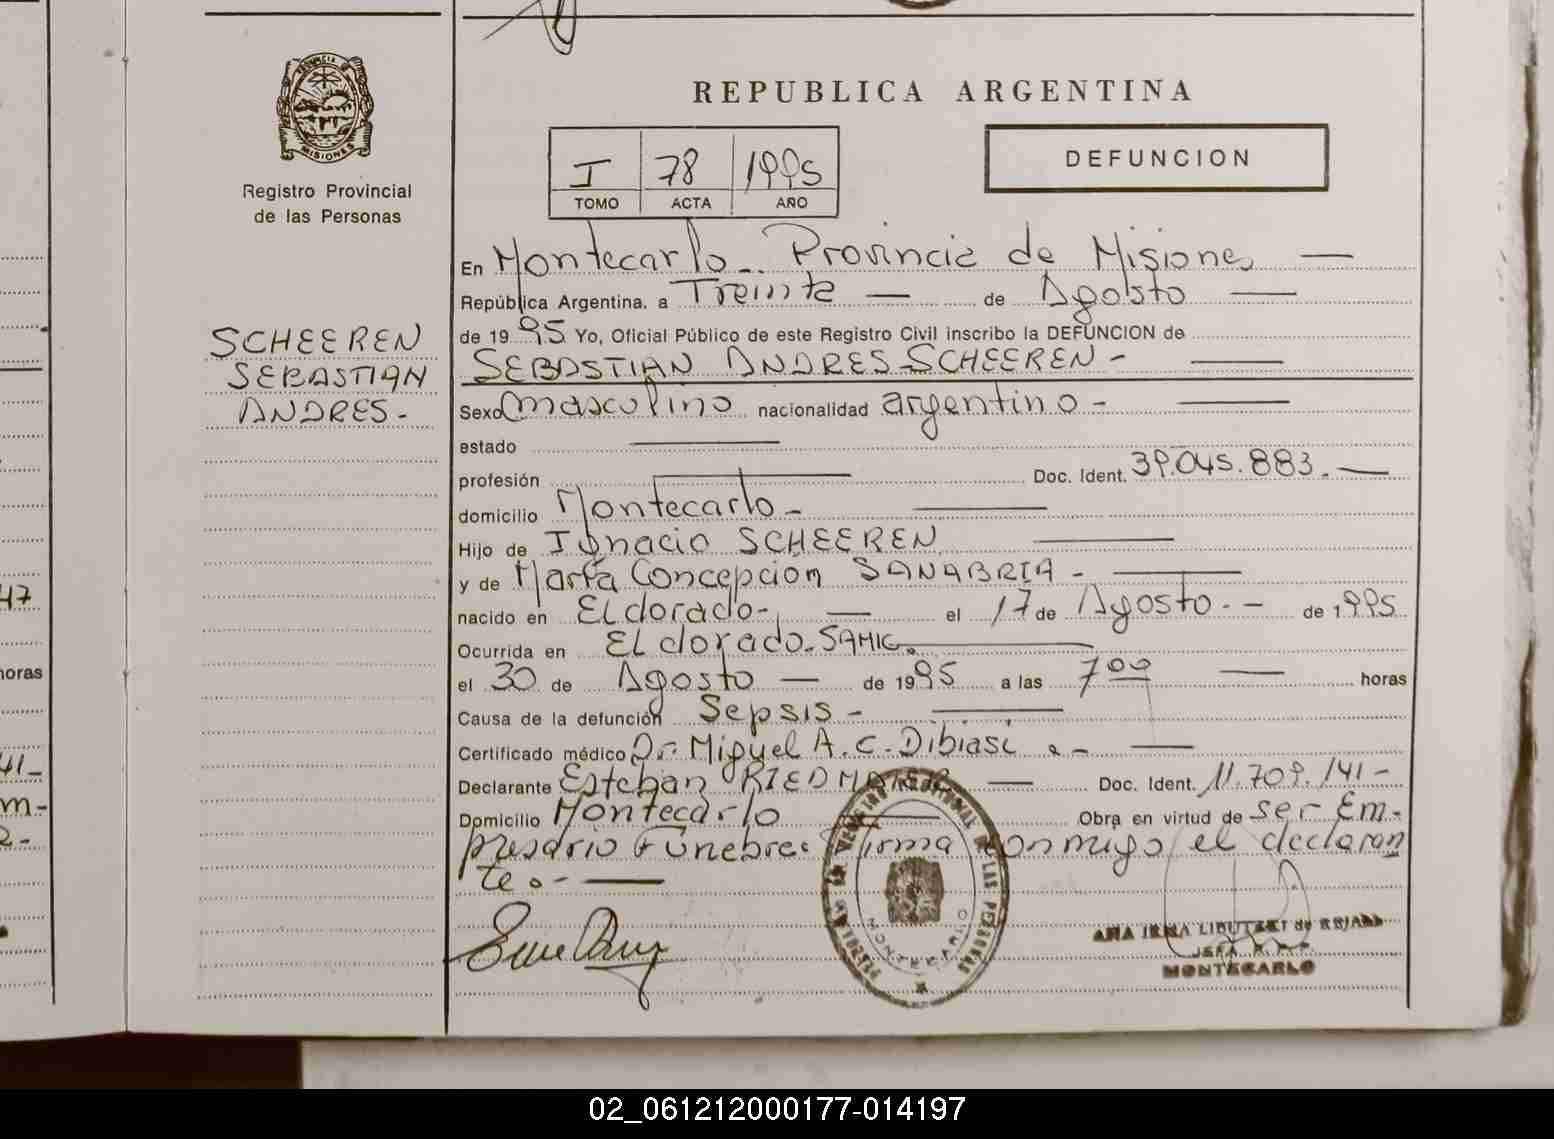 REPUBLICA ARGENTINA
PROVINCIA DE
MISIONES
Registro Provincial
de las Personas
I 78 1995
TOMO ACTA AÑO
DEFUNCION
SCHEEREN
SEBASTIAN
ANDRES-
En Montecarlo - Provincia de Misiones —
República Argentina, a Treinta — de Agosto —
de 19 95 Yo, Oficial Público de este Registro Civil inscribo la DEFUNCION de
SEBASTIAN ANDRES SCHEEREN - —
Sexo masculino nacionalidad argentino - —
estado —
profesión — Doc. Ident. 39.045.883. —
domicilio Montecarlo - —
Hijo de Ignacio SCHEEREN —
y de María Concepción SANABRIA - —
nacido en Eldorado-, — el 17 de Agosto. - de 1995
Ocurrida en El dorado-SAMIC. —
el 30 de Agosto — de 1995 a las 7 00 — horas
Causa de la defunción Sepsis - —
Certificado médico Dr. Miguel A. C. Dibiasi . - —
Declarante Esteban RIEDMAIER — Doc. Ident. 11.709.141 -
Domicilio Montecarlo — Obra en virtud de ser Em-
presario Funebre: Firma conmigo el declaran
te. - —
MONTECARLO
MONTECARLO
47
horas
41-
m-
02_061212000177-014197